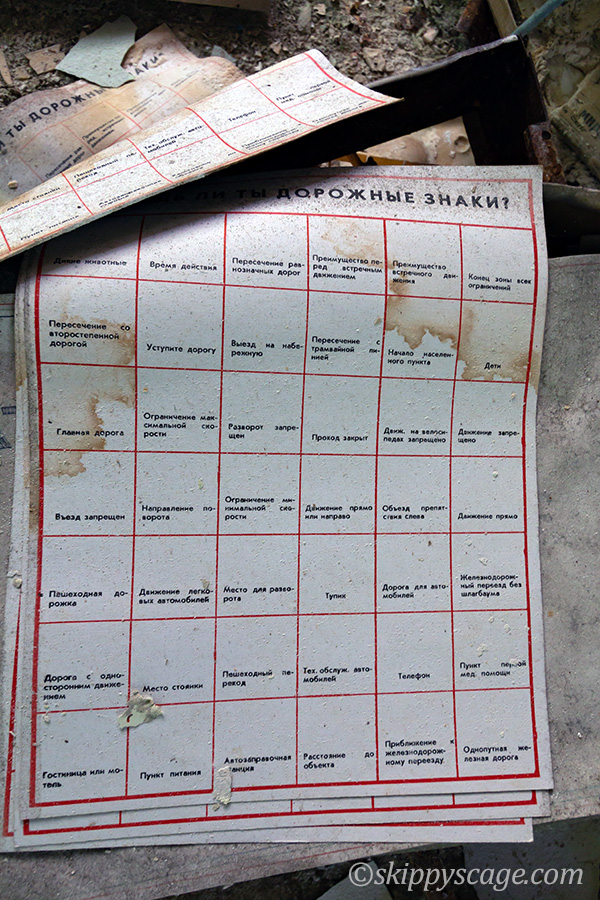 И ТЫ ДОРОЖНЫЕ ЗНАКИ
Телефон
Пункт первой
мед. помощи
Тех. обслуж. авто-
мобилей
Пешеходный пе-
реход
Место стоянки
Пункт питания
ЛИ ТЫ ДОРОЖНЫЕ ЗНАКИ?
Дикие животные
Время действия
Пересечение рав-
нозначных дорог
Преимущество пе-
ред встречным
движением
Преимущество
встречного дви-
жения
Конец зоны всех
ограничений
Пересечение со
второстепенной
дорогой
Уступите дорогу
Выезд на набе-
режную
Пересечение с
трамвайной ли-
нией
Начало населен-
ного пункта
Дети
Главная дорога
Ограничение мак-
симальной ско-
рости
Разворот запре-
щен
Проход закрыт
Движ. на велоси-
педах запрещено
Движение запре-
щено
Въезд запрещен
Направление по-
ворота
Ограничение ми-
нимальной ско-
рости
Движение прямо
или направо
Объезд препят-
ствия слева
Движение прямо
Пешеходная до-
рожка
Движение легко-
вых автомобилей
Место для разво-
рота
Тупик
Дорога для авто-
мобилей
Железнодорож-
ный переезд без
шлагбаума
Дорога с одно-
сторонним движе-
нием
Место стоянки
Пешеходный пе-
реход
Тех. обслуж. авто-
мобилей
Телефон
Пункт первой
мед. помощи
Гостиница или мо-
тель
Пункт питания
Автозаправочная
станция
Расстояние до
объекта
Приближение к
железнодорож-
ному переезду
Однопутная же-
лезная дорога
©skippyscage.com